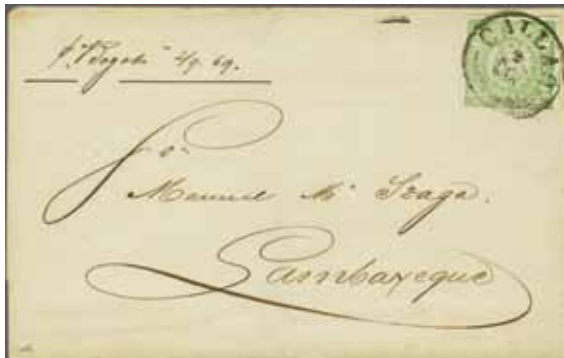 CALLAO
2/9. 69.
Sor
Manuel Ma Izaga.
Lambayeque